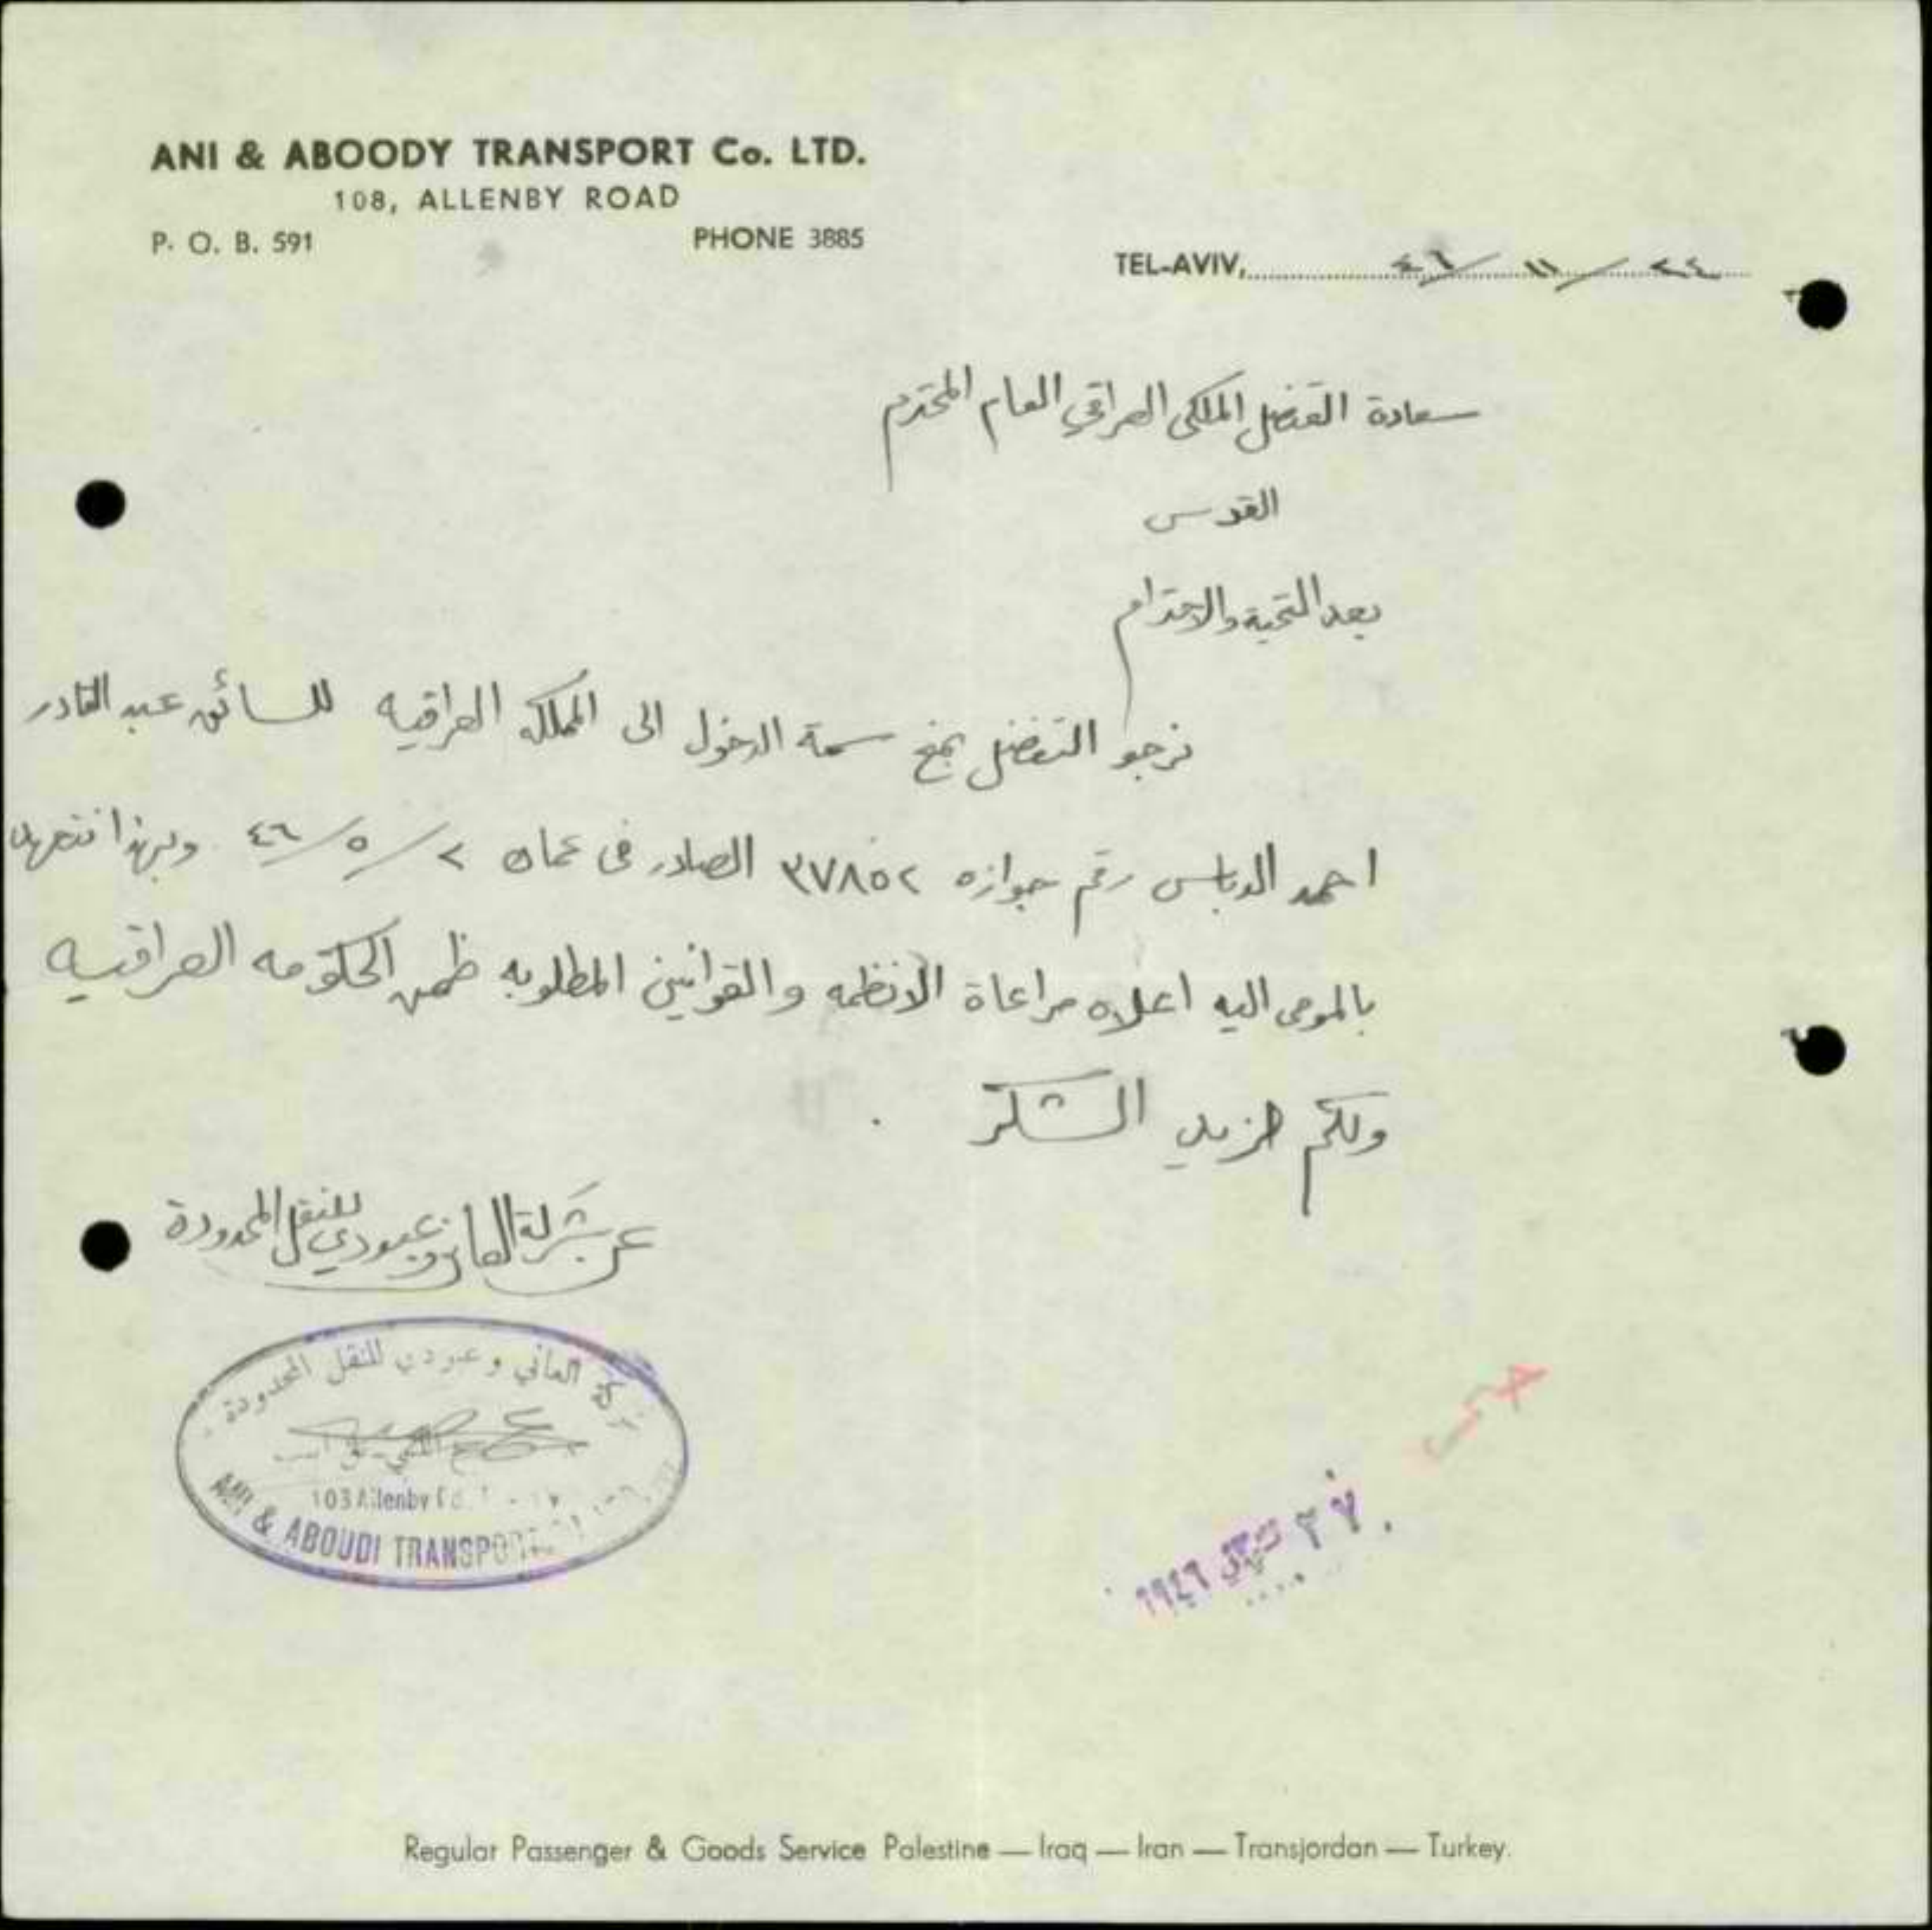 ANI & ABOODY TRANSPORT Co. LTD.
108, ALLENBY ROAD
P. O. B. 591 PHONE 3885
TEL-AVIV, ٢٤ / ١١ / ٤٦
سعادة القنصل الملكي العراقي العام المحترم
القدس
بعد التحية والاحترام
نرجو التفضل بمنح سمة الدخول الى المملكه العراقيه للسائق عبد القادر
احمد الدباس رقم جوازه ٣٧٨٥٢ الصادر في عمان ٢ / ٥ / ٤٦ وبهذا نتعهد
بالموصى اليه اعلاه مراعاة الانظمه والقوانين المطلوبه ظمن الحكومه العراقيه
ولكم مزيد الشكر .
عن شركة العاني وعبودي للنقل المحدودة
شركة العاني وعبودي للنقل المحدودة
103 Allenby
ANI & ABOUDI TRANSPORT
٢٧ ١٩٤٦
Regular Passenger & Goods Service Palestine — Iraq — Iran — Transjordan — Turkey.